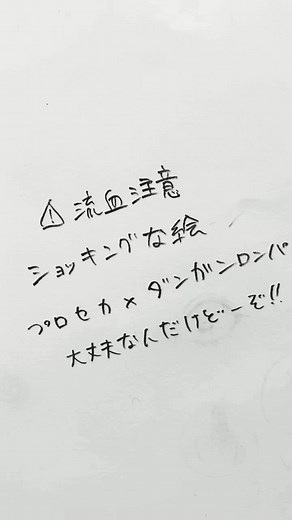 ⚠流血注意
ショッキングな絵
プロセカ×ダンガンロンパ
大丈夫なんだけどーぞ!!